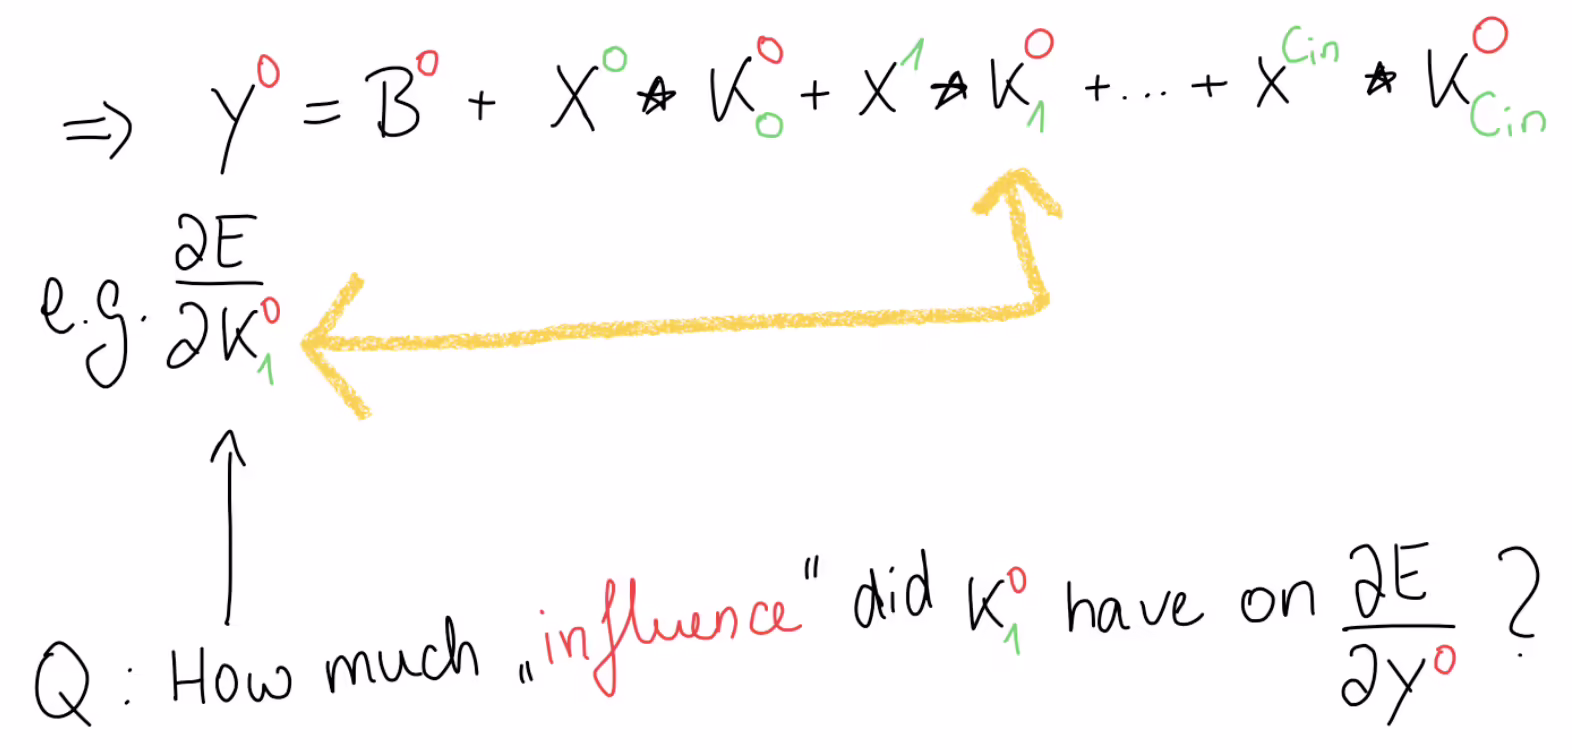 ⇒ Y⁰ = B⁰ + X⁰ ⋆ K⁰₀ + X¹ ⋆ K⁰₁ + ... + X^{Cin} ⋆ K⁰_{Cin}
e.g. ∂E/∂K⁰₁
Q: How much „influence" did K⁰₁ have on ∂E/∂Y⁰ ?